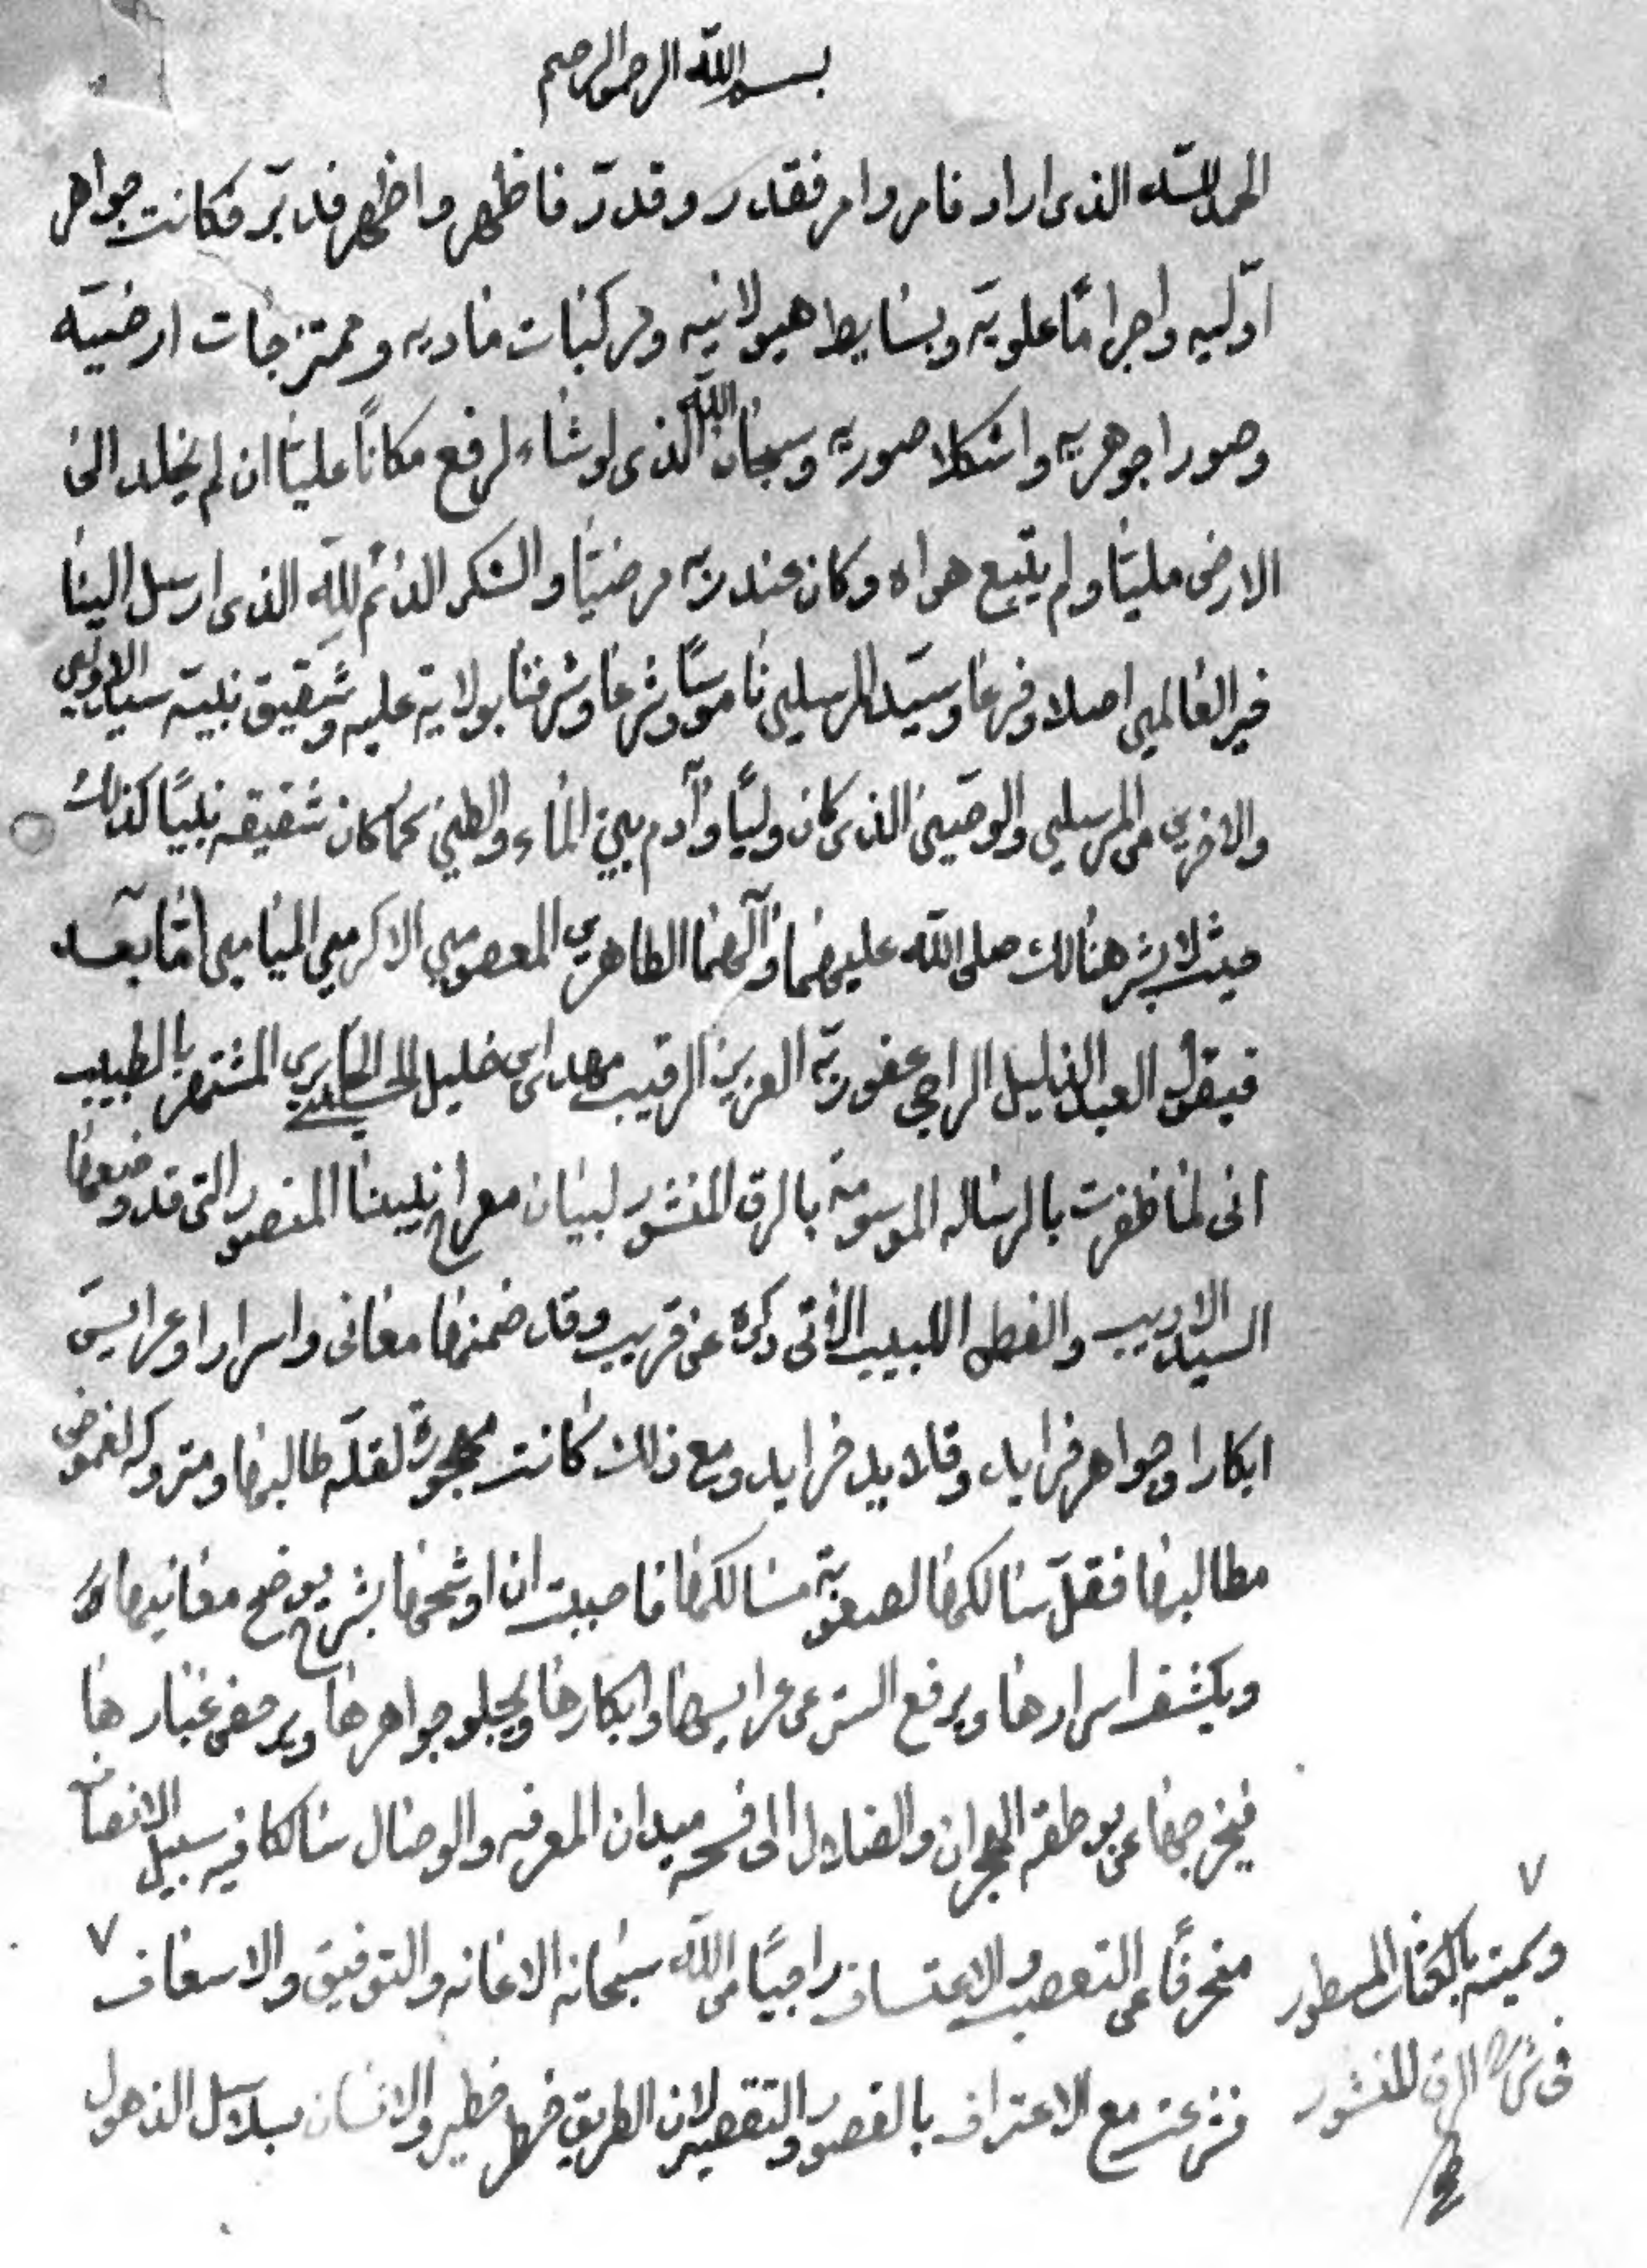 بسم الله الرحمن الرحيم
الحمد لله الذى اراد فامر وامر فقدر وقدّر فاظهر واظهر فدبّر فكانت جواهر
اوّليه واجراماً علويّة وبسايط هيولانيه ومركبات ماديه وممتزجات ارضيّه
وصورا جوهريه واشكلا صوريه وسبحان الله الذى لو شاء لرفع مكاناً عليّا ان لم يخلد الى
الارض مليّا ولم يتّبع هواه وكان عند ربه مرضيّا والشكر الدائم لله الذى ارسل الينا
خير العالمين اصلا وفرعا وسيّد المرسلين ناموساً وشرعا وشرفنا بولاية عليه وشقيق نبيّه سيد الاولين
والاخرين من المرسلين والوصيّين الذى كان وليّاً وآدم بين الماء والطين كما كان شقيقه نبيّاً كذلك
حيث لا بشر هنالك صلى الله عليهما وآلهما الطاهرين المعصومين الاكرمين الميامين امّا بعد
فيقول العبد الذليل الراجى عفو ربّه العزيز الرقيب مهد ابن خليل المشتهر بالطبيب
انى لما ظفرت بالرساله الموسومة بالرق المنشور لبيان معراج نبينا المنصور التى قد وضعها
السيد الاديب والفطن اللبيب الاتى ذكره عن قريب وقد ضمنها معانى واسرارا وعرايس
ابكارا وجواهر فرايد وقلايد خرايد ومع ذلك كانت مهجورة لقلّة طالبها ومتروكه لغموض
مطالبها فقلّ سالكها لصعوبة مسالكها فاحببت ان اوشحها بشرح يوضح معانيها
ويكشف اسرارها ويرفع الستر عن عرايسها وابكارها ويجلو جواهرها ويرحض غبارها
فيخرجها عن طة الهجران والضلال الى فسحه ميدان المعرفه والوصال سالكا فيه سبيل الانصاف
منحرفاً عن التعصب والاعتساف راجيًا من الله سبحانه الاعانه والتوفيق والاسعاف ٧
فشرعت مع الاعتراف بالقصور والتقصير لان الطريق خطر خطير والانسان بسلاسل الذهول
٧
وسميته بالكتاب المسطور
فى شرح الرق المنشور
صح